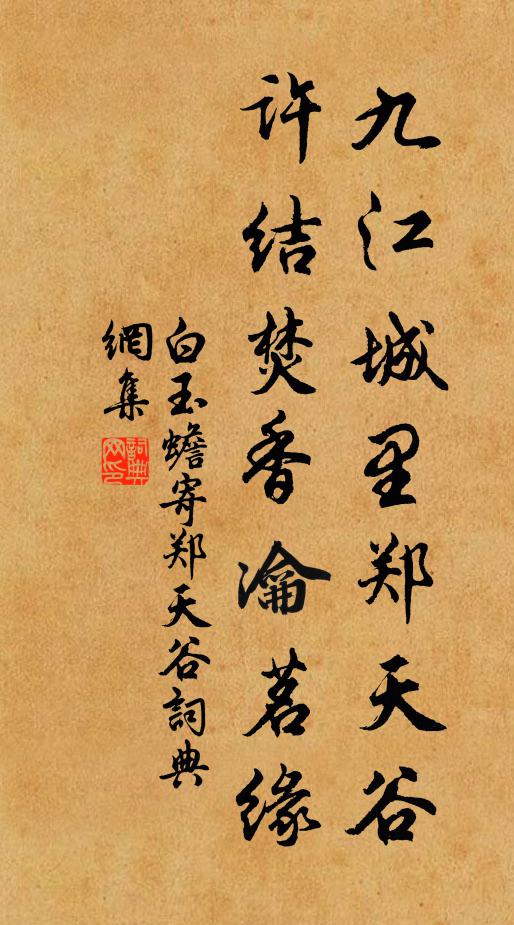 九江城里郑天谷
许结焚香瀹茗缘
白玉蟾寄郑天谷詞典
網集
詞典網印